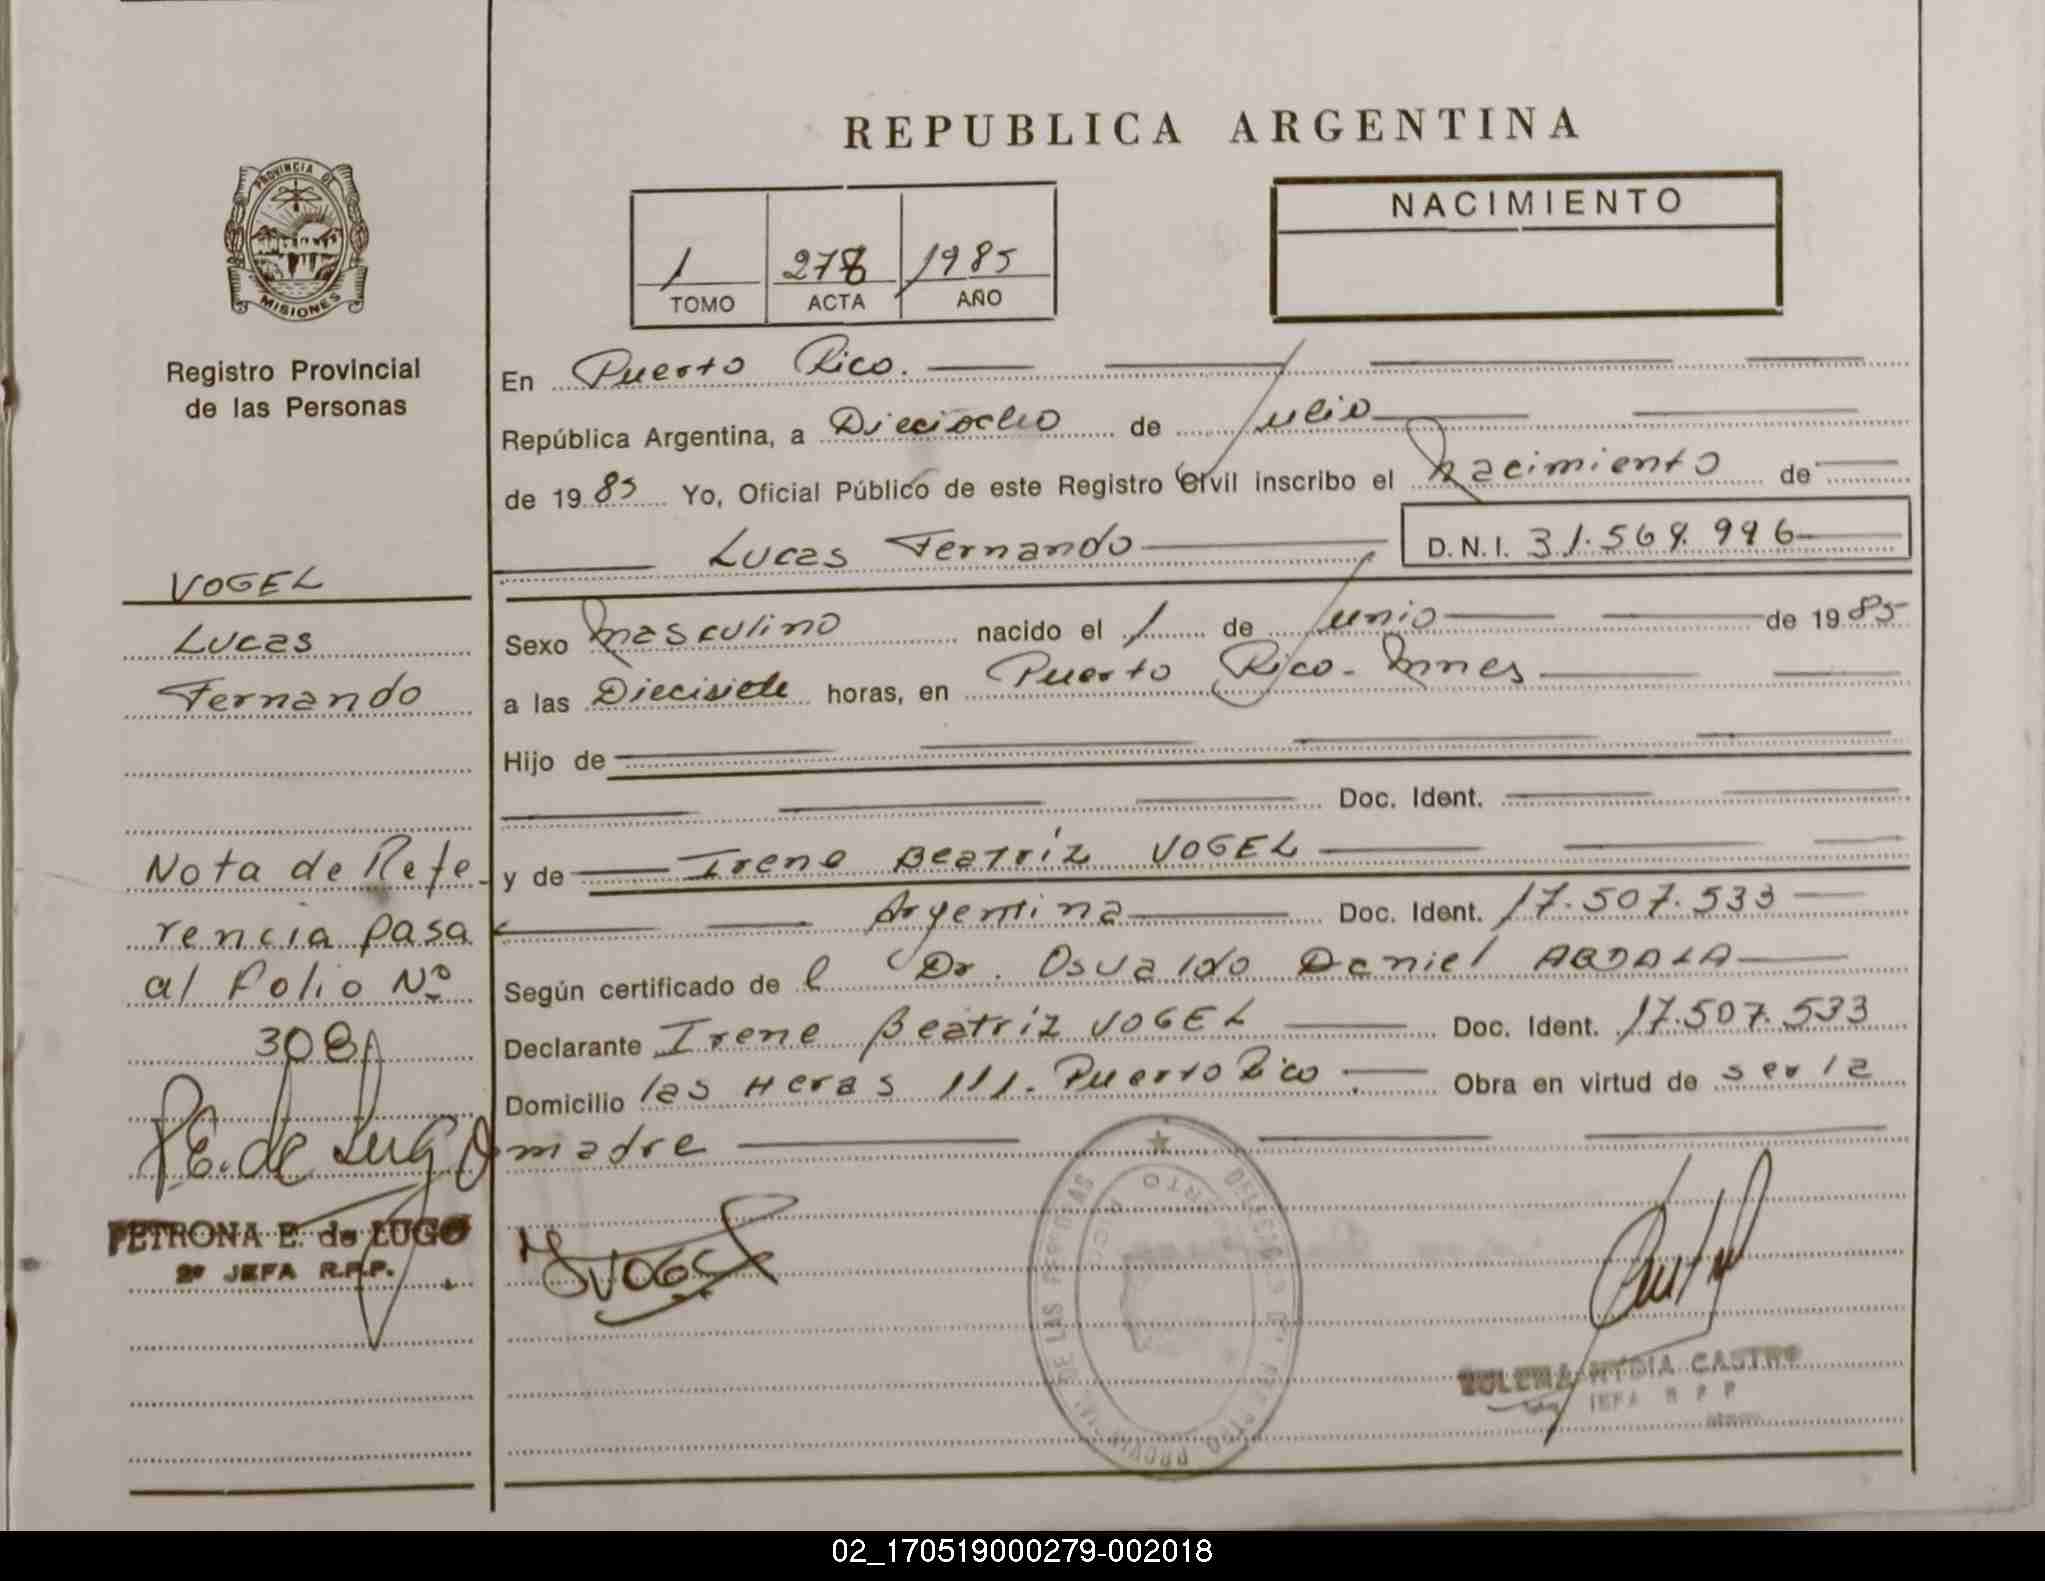 REPUBLICA ARGENTINA
PROVINCIA DE
MISIONES
Registro Provincial
de las Personas
1 278 1985
TOMO ACTA AÑO
NACIMIENTO
En Puerto Rico.
República Argentina, a Dieciocho de Julio
de 1985 Yo, Oficial Público de este Registro Civil inscribo el Nacimiento de
Lucas Fernando D.N.I. 31.569.996
Sexo masculino nacido el 1 de Junio de 1985
a las Diecisiete horas, en Puerto Rico. Mnes
Hijo de
Doc. Ident.
y de Irene Beatríz VOGEL
Argentina Doc. Ident. 17.507.533
Según certificado de l Dr. Osvaldo Daniel ABDALA
Declarante Irene Beatríz VOGEL Doc. Ident. 17.507.533
Domicilio las Heras 111. Puerto Rico. Obra en virtud de ser la
madre
VOGEL
Lucas
Fernando
Nota de Refe-
rencia pasa
al Folio Nº
308
P.E. de Lugo
PETRONA E. de LUGO
2º JEFA R.P.P.
VOGEL
PUERTO RICO
PROVINCIAL DE LAS PERSONAS
NYDIA CASTRO
JEFA R P P
02_170519000279-002018